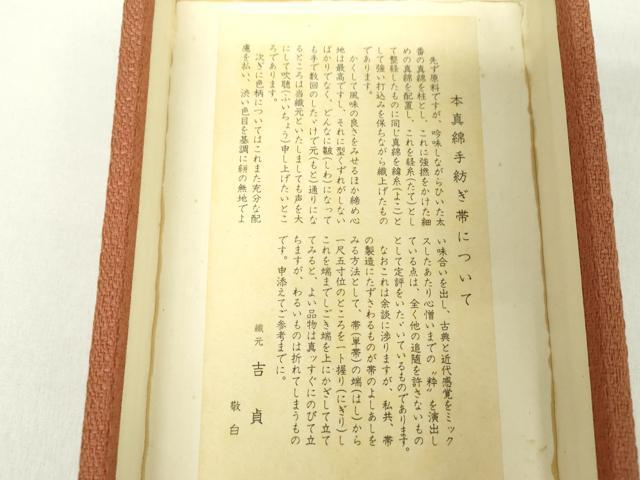 本真綿手紡ぎ帯について
先ず原料ですが、吟味しながらひいた太
番の真綿を柱とし、これに強撚をかけた細
めの真綿を配置し、これを経糸(たて)とし
て整経したものに同じ真綿を緯糸(よこ)と
して強い打込みを保ちながら織上げたもの
であります。
かくして風味の良さをみせるほか締め心
地は最高ですし、それに型くずれがしない
ばかりでなく、どんなに皺(しわ)になって
も手で数回のしたゞけで元(もと)通りにな
るところは当織元といたしましても声を大
にして吹聴(ふいちょう)申し上げたいとこ
ろであります。
次ぎに色柄についてはこれまた充分な配
慮を払い、渋い色目を基調に絣の無地でよ
い味合いを出し、古典と近代感覚をミック
スしたあたり心憎いまでの〝粋〟を演出し
ている点は、全く他の追随を許さないもの
として定評をいたゞいているものであります。
なおこれは余談に渉りますが、私共、帯
の製造にたずさわるものが帯のよしあしを
みる方法として、帯(単帯)の端(はし)から
一尺五寸位のところを一ト握り(にぎり)し
これを端までしごき端を上にかざして立て
てみると、よい品物は真ッすぐにのびて立
ちますが、わるいものは折れてしまうもの
です。申添えてご参考までに。
織元 吉貞
敬白